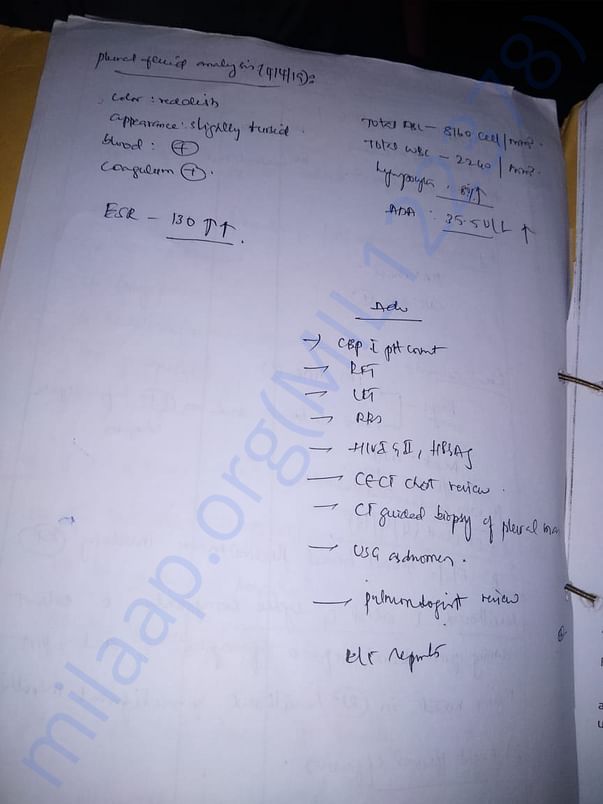 plural fluid analysis (9/4/19):
color: reddish
appearance: slightly turbid.
blood: +
coagulum +.
ESR - 130 ↑↑.
Total RBC - 8160 cell/mm3.
Total WBC - 2240/mm3.
Lymphocyte: ↑
ADA: 35.5 U/L ↑
Adv
→ CBP plt count
→ RFT
→ LFT
→ RBS
→ HIV I & II, HBSAg
→ CECT chest review.
→ CT guided biopsy of plural
→ USG abdomen.
→ pulmonologist review
reports
milaap.org(MIL122378)